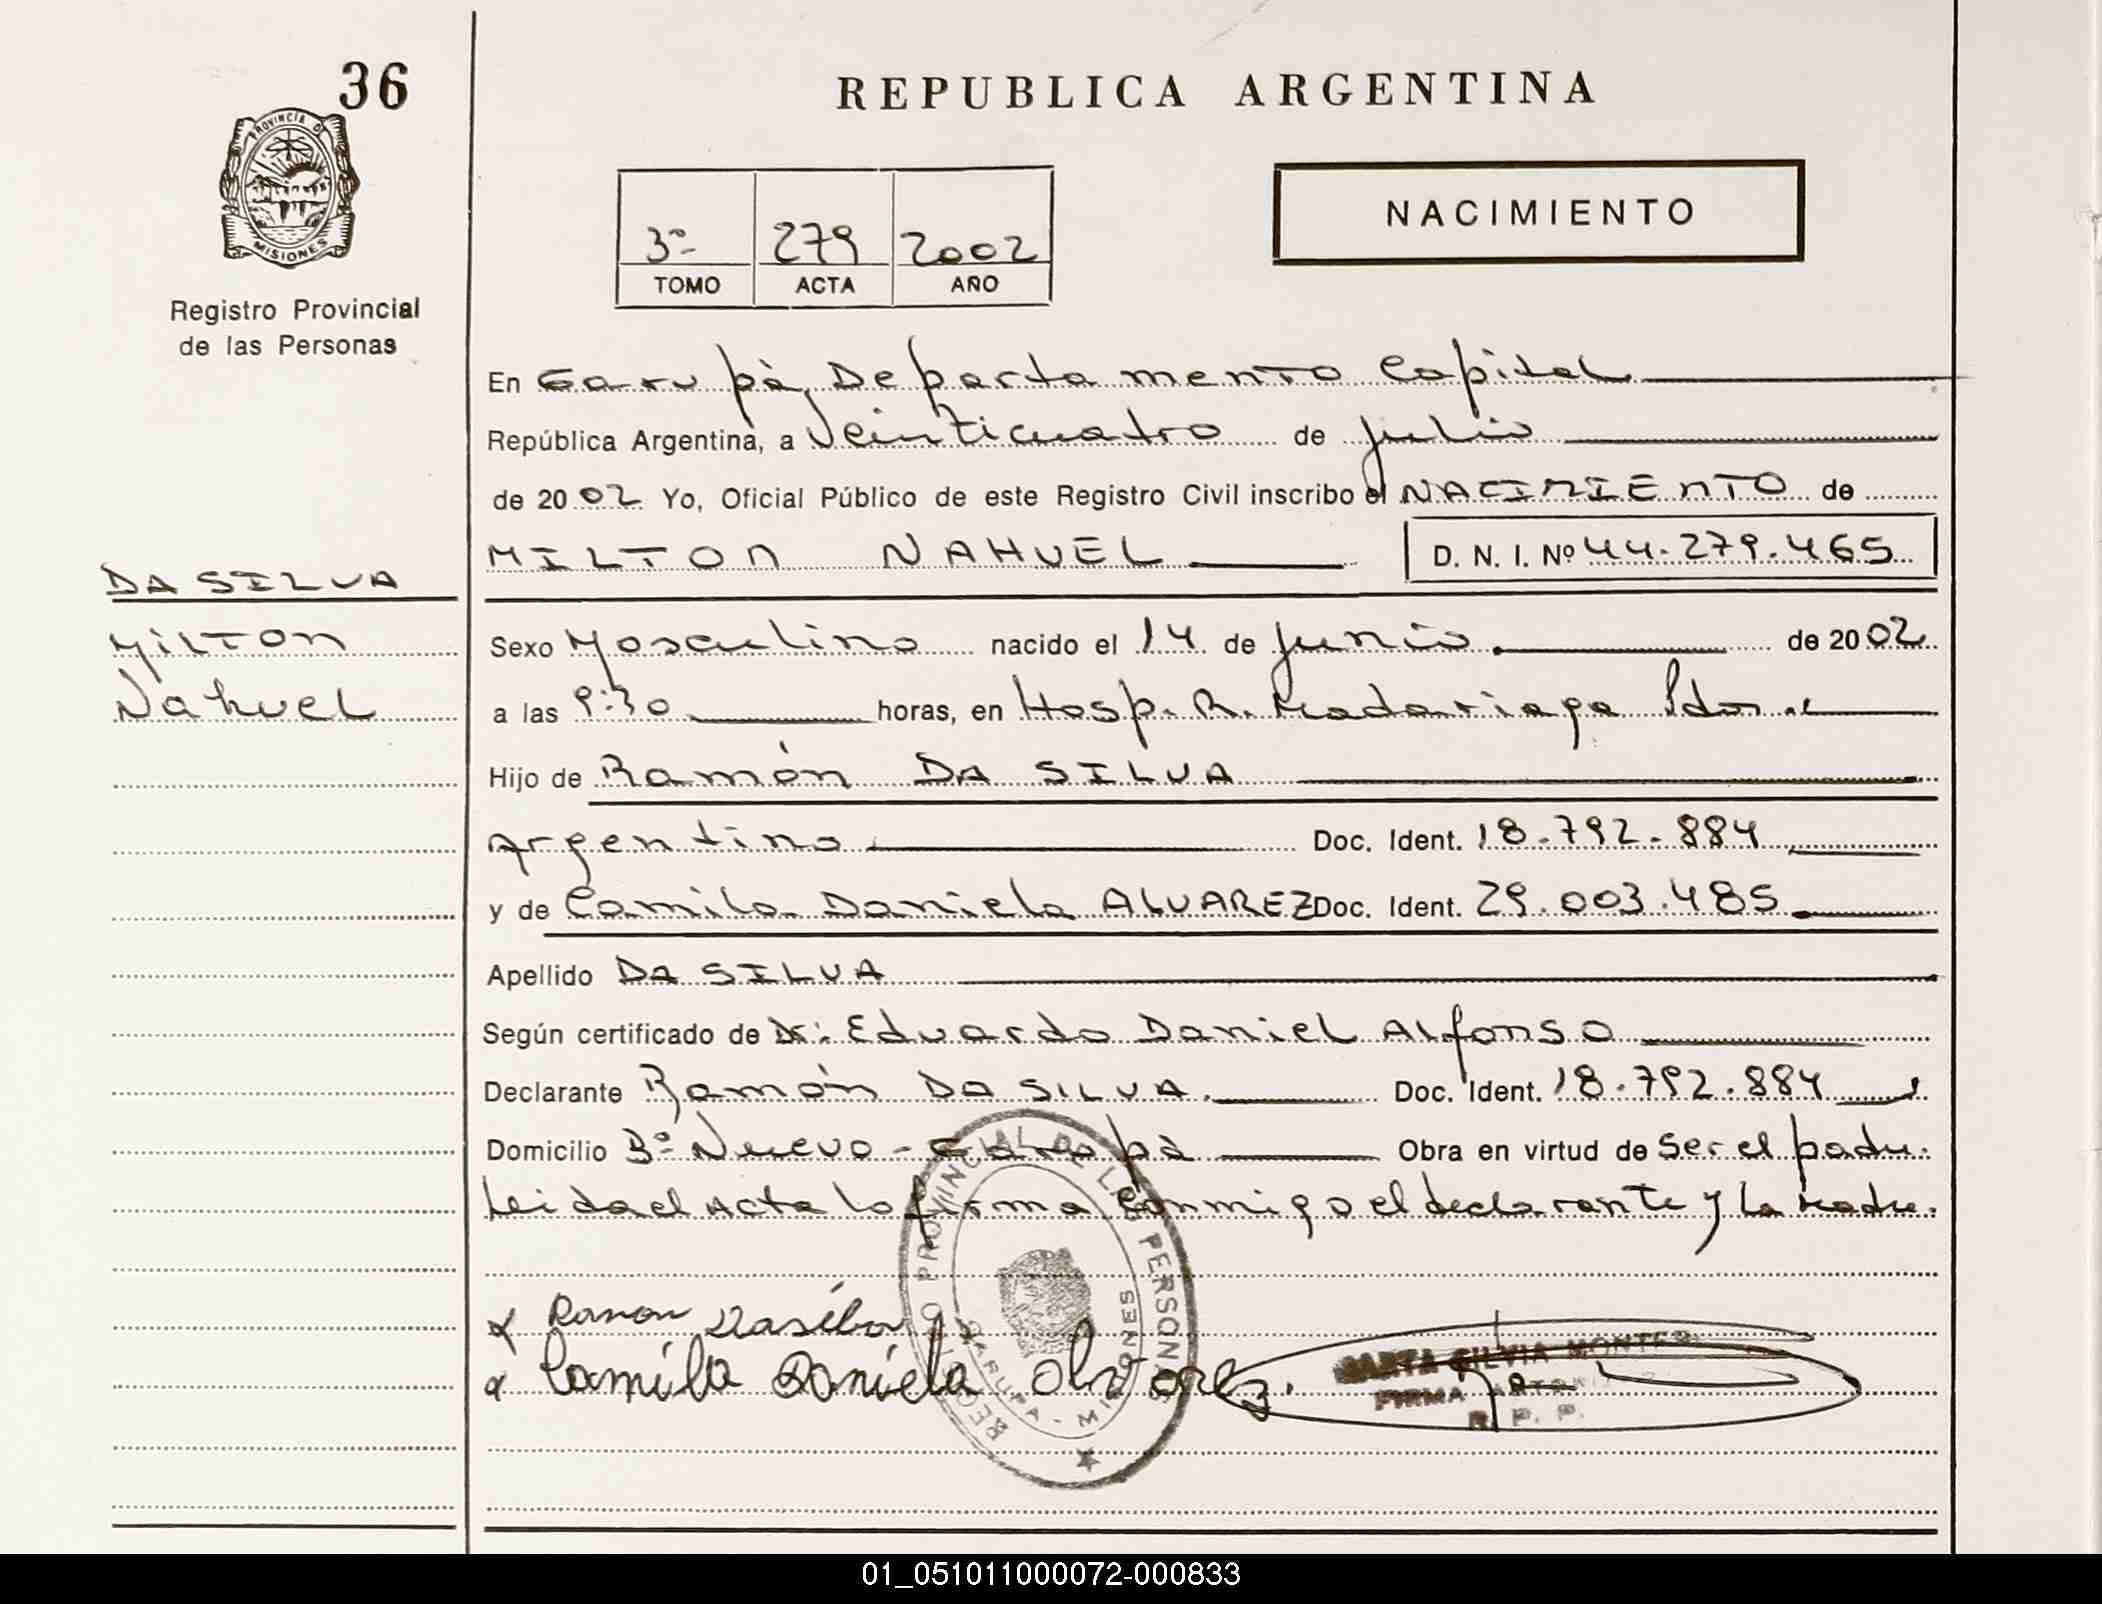 36
REPUBLICA ARGENTINA
PROVINCIA D
MISIONES
Registro Provincial
de las Personas
NACIMIENTO
3º 279 2002
TOMO ACTA AÑO
En Garupà, Departamento Capital
República Argentina, a Veinticuatro de julio
de 2002 Yo, Oficial Público de este Registro Civil inscribo el NACIMIENTO de
MILTON NAHUEL D. N. I. Nº 44.279.465
DA SILVA
Milton
Nahuel
Sexo Masculino nacido el 14 de junio de 2002
a las 9:30 horas, en Hosp. R. Madariaga Pdas.
Hijo de Ramón DA SILVA
Argentino Doc. Ident. 18.792.884
y de Camila Daniela ALVAREZ Doc. Ident. 29.003.485
Apellido DA SILVA
Según certificado de Dr: Eduardo Daniel Alfonso
Declarante Ramón DA SILVA. Doc. Ident. 18.792.884
Domicilio Bº Nuevo - Garupà Obra en virtud de Ser el padre.
Leida el Acta la firma conmigo el declarante y la Madre.
Ramon Dasilva
Camila Daniela Alvarez.
REGISTRO PROVINCIAL DE LAS PERSONAS
GARUPA - MISIONES
SILVIA MONTE
FIRMA
R. P. P.
01_051011000072-000833